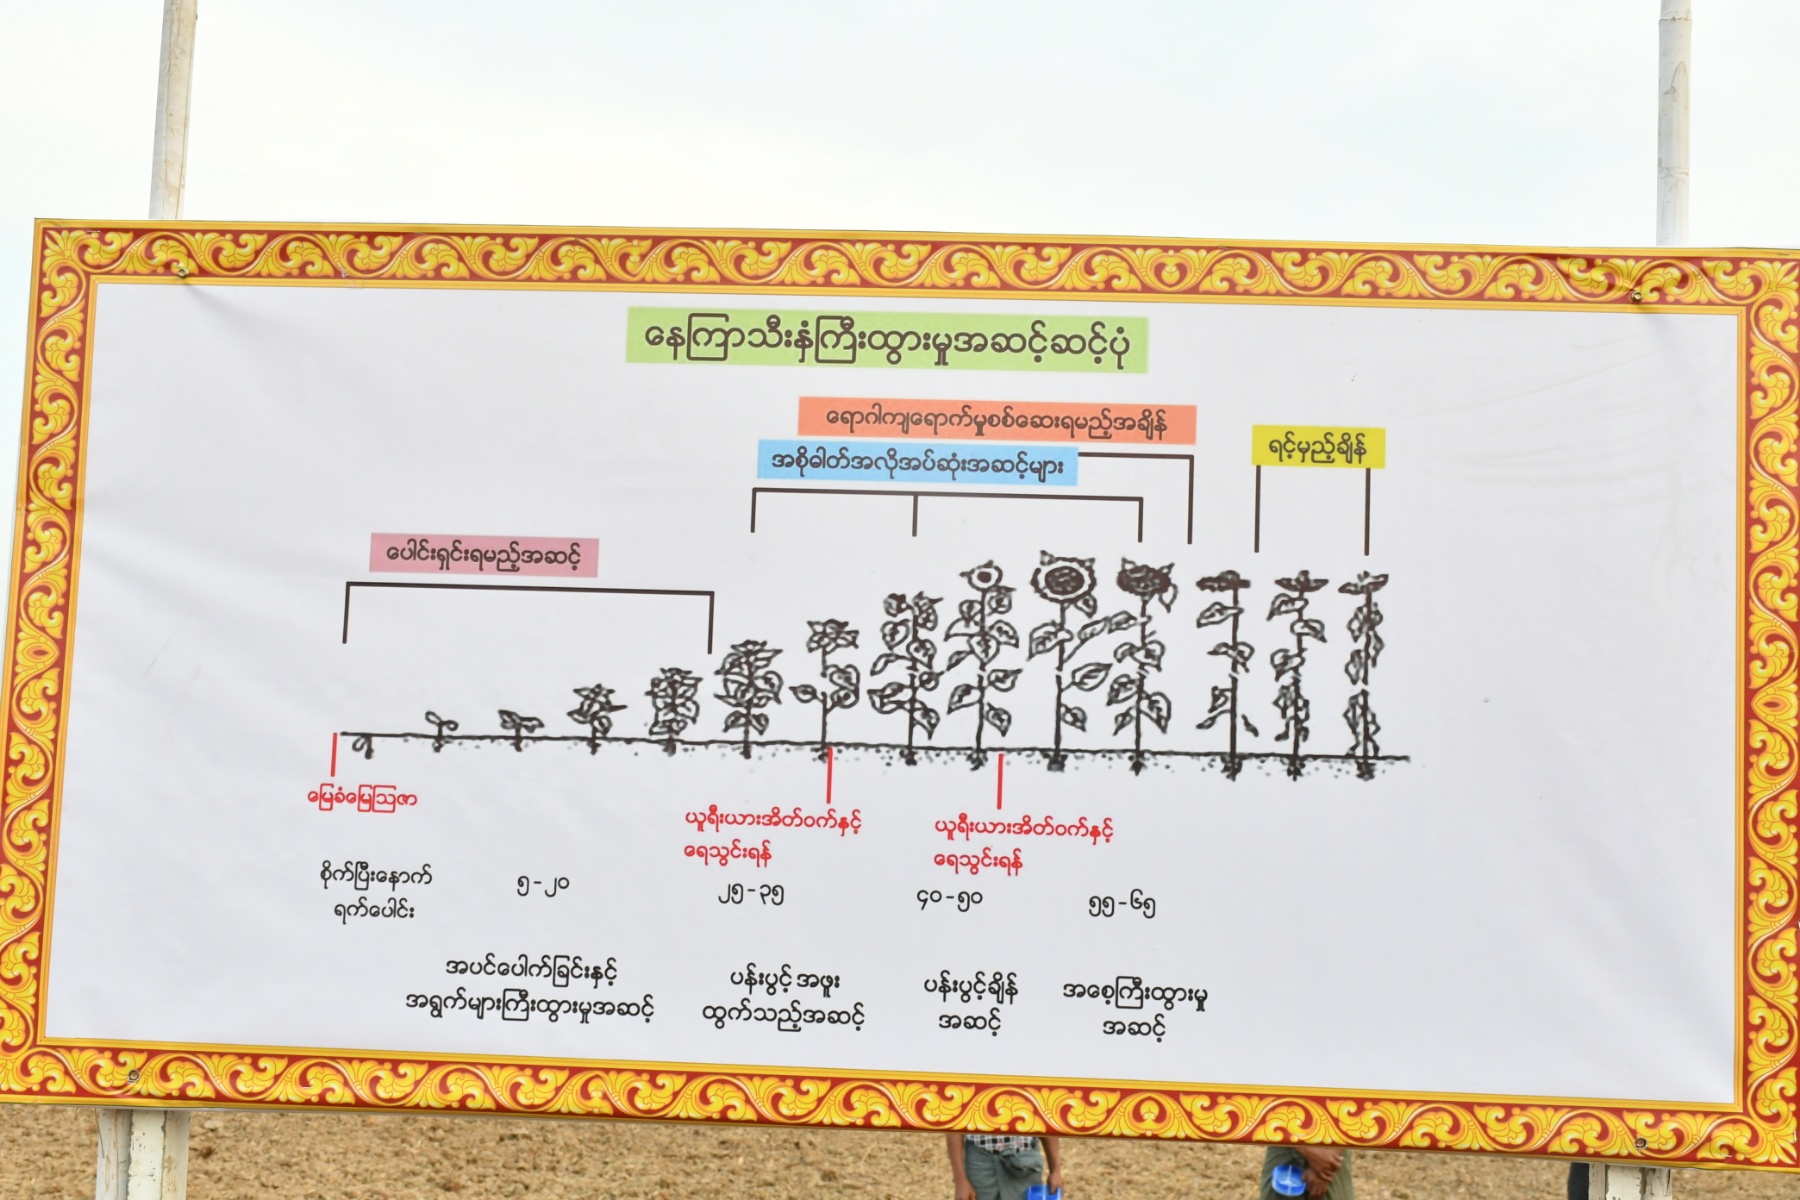 နေကြာသီးနှံကြီးထွားမှုအဆင့်ဆင့်ပုံ
ရောဂါကျရောက်မှုစစ်ဆေးရမည့်အချိန်
အစိုဓါတ်အလိုအပ်ဆုံးအဆင့်များ
ရင့်မှည့်ချိန်
ပေါင်းရှင်းရမည့်အဆင့်
မြေခံမြေဩဇာ
ယူရီးယားအိတ်ဝက်နှင့်
ရေသွင်းရန်
ယူရီးယားအိတ်ဝက်နှင့်
ရေသွင်းရန်
စိုက်ပြီးနောက်
ရက်ပေါင်း
၅-၂၀
၂၅-၃၅
၄၀-၅၀
၅၅-၆၅
အပင်ပေါက်ခြင်းနှင့်
အရွက်များကြီးထွားမှုအဆင့်
ပန်းပွင့်အဖူး
ထွက်သည့်အဆင့်
ပန်းပွင့်ချိန်
အဆင့်
အစေ့ကြီးထွားမှု
အဆင့်